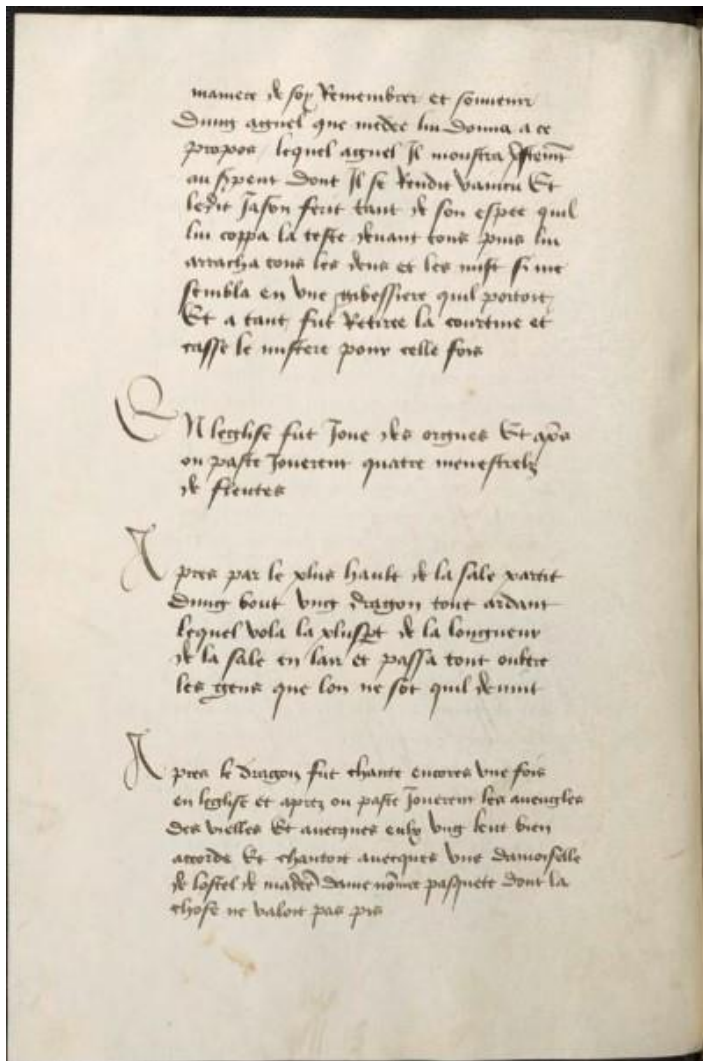 maniere de soy Remembrer et souvenir
Dung agnel que medee lui Donna a ce
propos / lequel agnel Il monstra
au sṗent Dont Il se Rendit vaincu Et
ledit Jason ferit tant de son espee quil
lui coppa la teste devant tous puis lui
arracha tous les dens et les mist si me
sembla en une gibessiere quil portoit
Et a tant fut Retiree la courtine et
casse le mistere pour celle fois
EN leglise fut Joue des orgues Et ap̄s
ou paste Jouerent quatre menestrelz
de fleutes
Apres par le plus hault de la sale partit
Dung bout ung dragon tout ardant
lequel vola la pluspt de la longueur
de la sale en lair et passa tout oultre
les gens que lon ne sot quil devint
Apres le dragon fut chante encores une fois
en leglise et aprez ou paste Jouerent les aveugles
des vielles Et avecques eulx ung leut bien
accorde Et chantoit avecques une damoiselle
de lostel de dame nōmee pasquette dont la
chose ne valoit pas pis